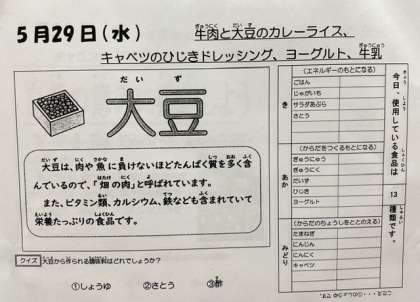 5月29日(水)
牛肉と大豆のカレーライス、
キャベツのひじきドレッシング、ヨーグルト、牛乳
だいず
大豆
大豆は、肉や魚に負けないほどたんぱく質を多く含
んでいるので、「畑の肉」と呼ばれています。
また、ビタミン類、カルシウム、鉄なども含まれていて
栄養たっぷりの食品です。
クイズ
大豆から作られる調味料はどれでしょうか?
①しょうゆ ②さとう ③酢
今日、使用している食品は
13
種類です。
き
(エネルギーのもとになる)
ごはん
じゃがいも
サラダあぶら
さとう
あか
(からだをつくるもとになる)
ぎゅうにゅう
ぎゅうにく
だいず
ひじき
ヨーグルト
みどり
(からだのちょうしをととのえる)
たまねぎ
にんじん
にんにく
キャベツ